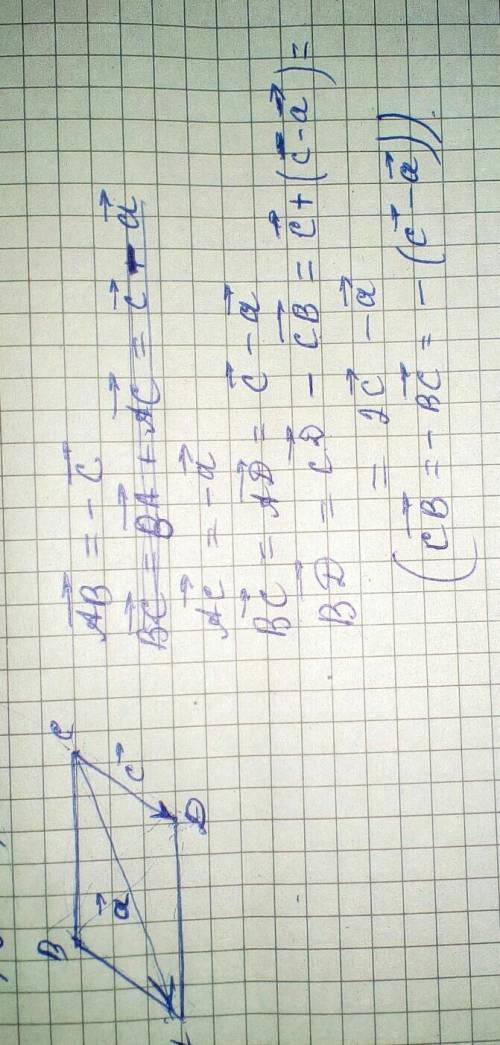 B C
a⃗ c⃗
A D
A⃗B⃗ = - c⃗
B⃗C⃗ = B⃗A⃗ + A⃗C⃗ = c⃗ - a⃗
A⃗C⃗ = - a⃗
B⃗C⃗ = A⃗D⃗ = c⃗ - a⃗
B⃗D⃗ = C⃗D⃗ - C⃗B⃗ = c⃗ + (c⃗ - a⃗) =
= 2c⃗ - a⃗
(C⃗B⃗ = - B⃗C⃗ = - (c⃗ - a⃗)).